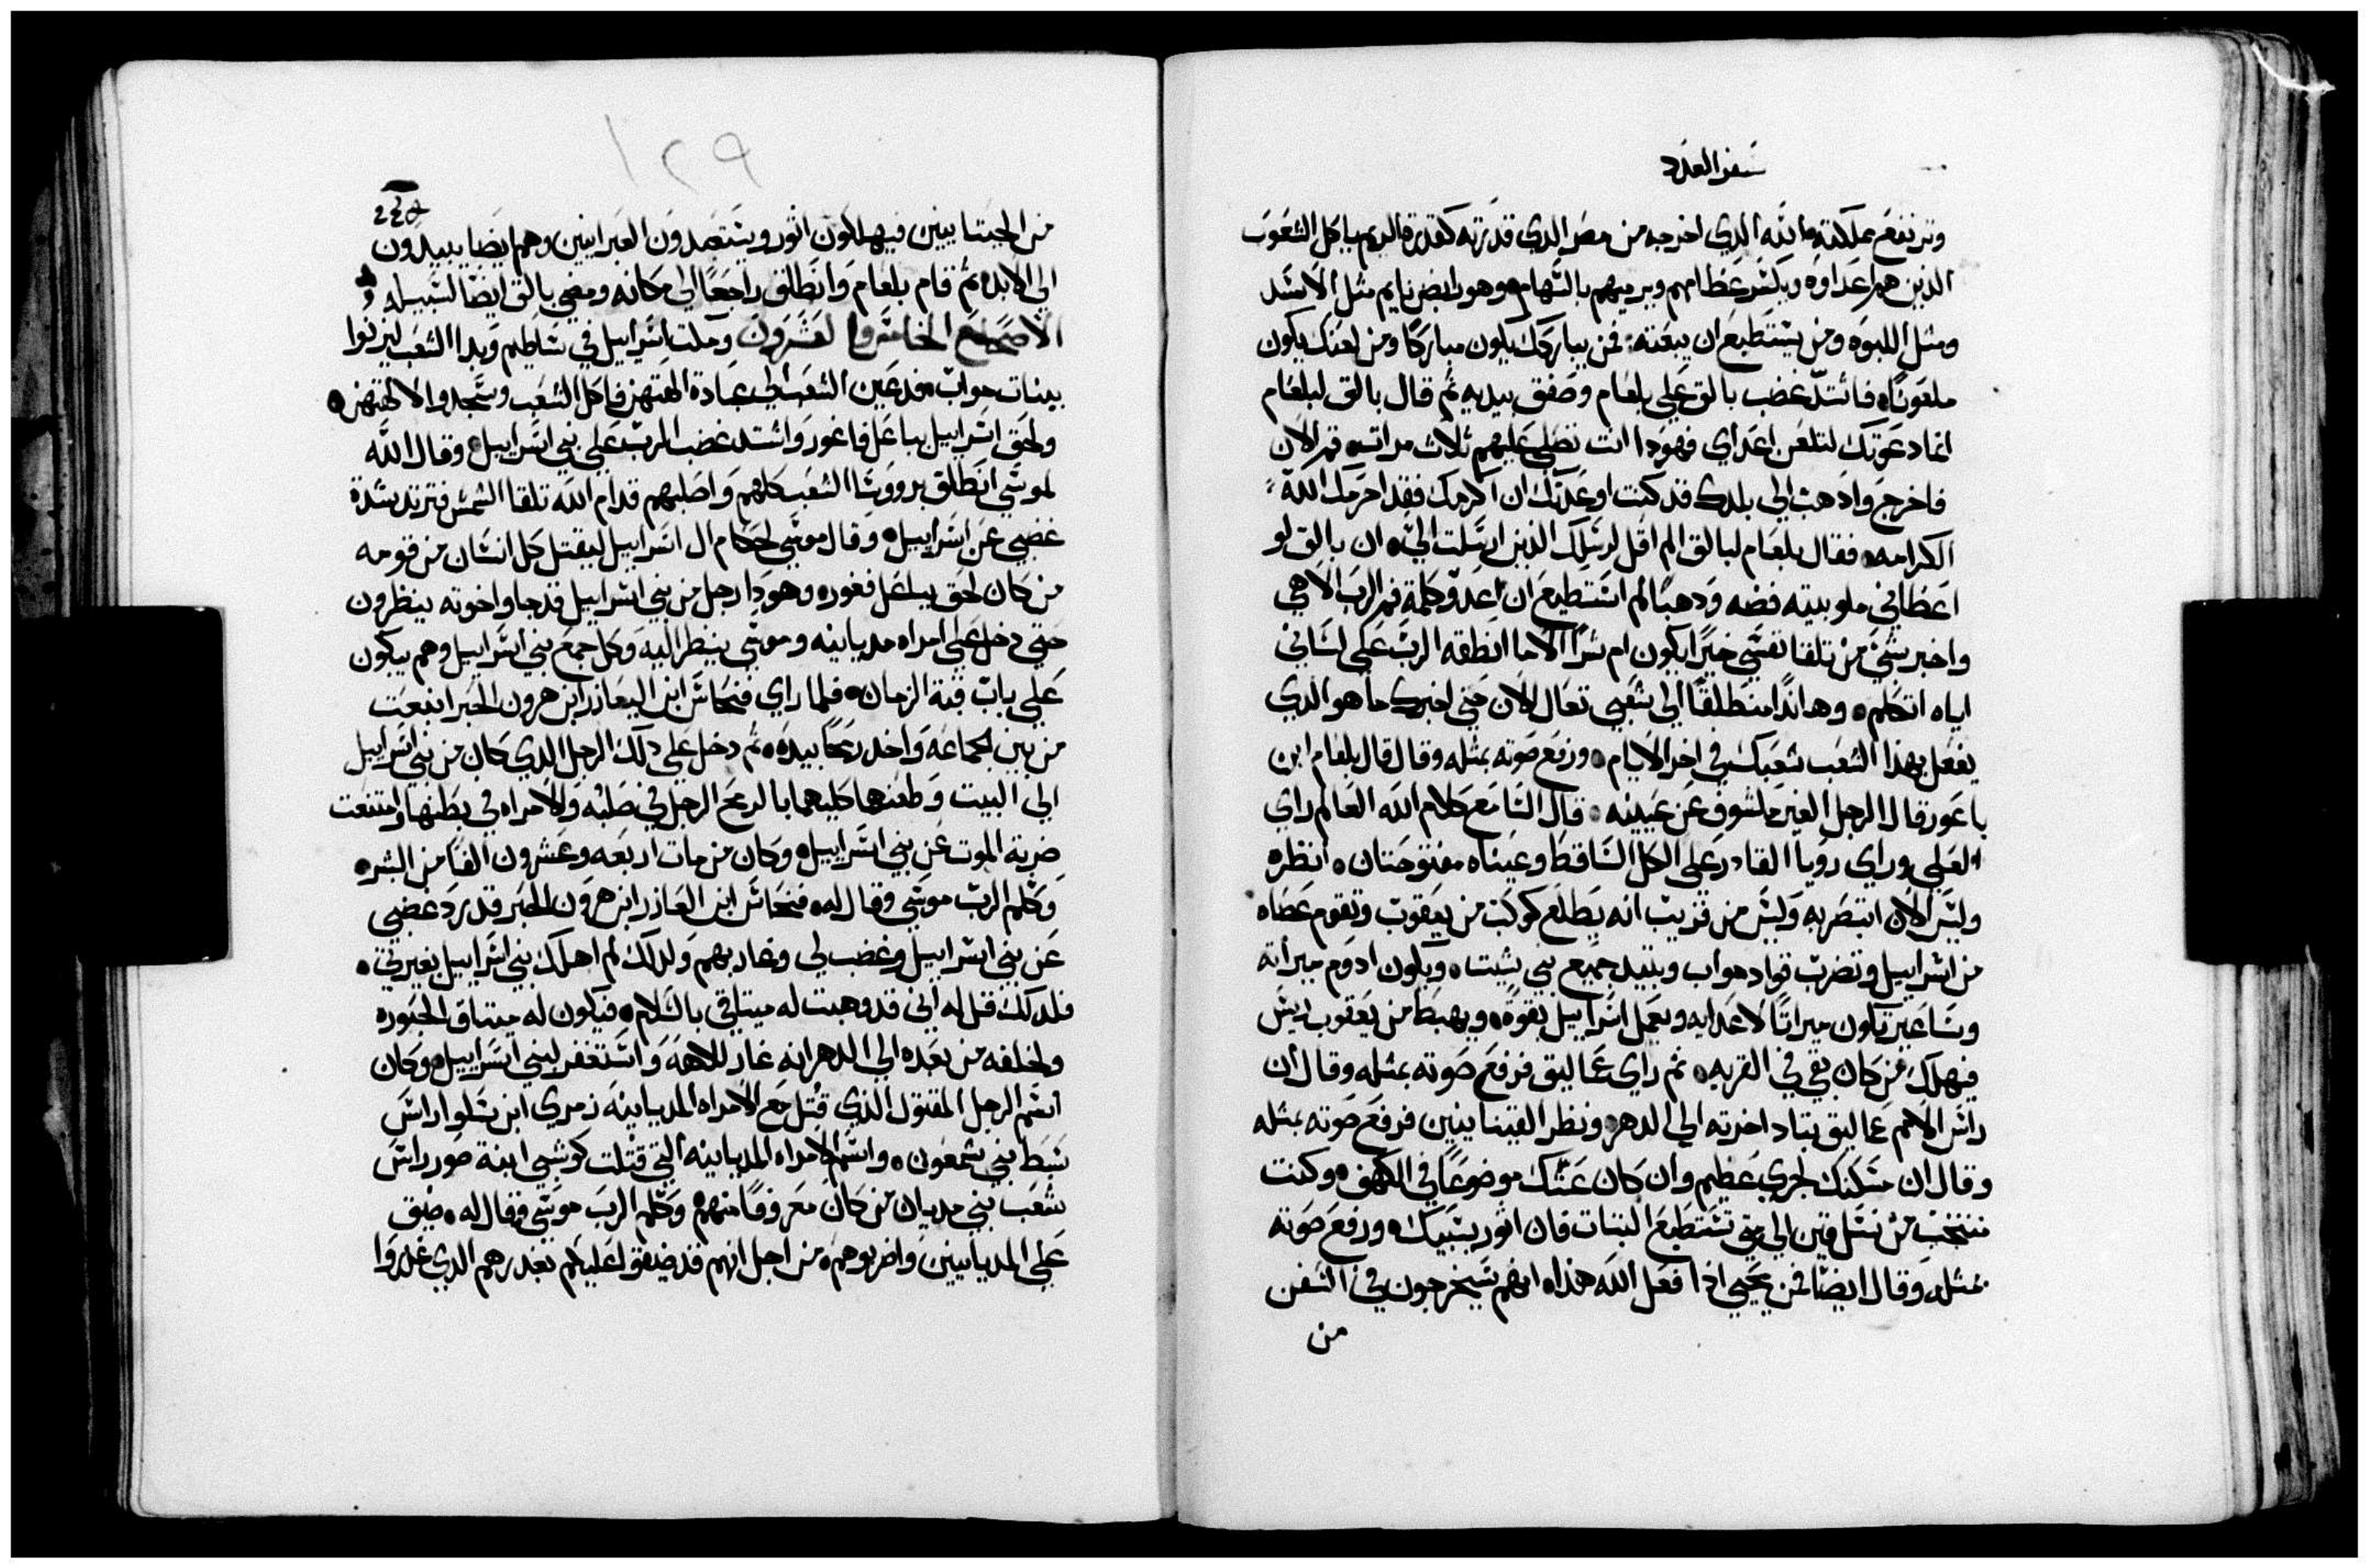 سفر العدد
وترتفع مملكته والله الذي اخرجه من مصر الدي قدرته كقدرة الريم ياكل الشعوب
الذين هم اعداوه ويكسر عظامهم ويرميهم بالسهام وهو رابض نايم مثل الاسد
ومثل اللبوه ومن يستطيع ان يبعته فمن يباركك يكون مباركا ومن لعنك يكون
ملعونا فاشتد غضب بالق علي بلعام وصفق بيديه ثم قال بالق لبلعام
انما دعوتك لتلعن اعداي فهودا انت تصلي عليهم ثلاث مرات قم الان
فاخرج وادهب الي بلدك قد كنت اوعدتك ان اكرمك فقد احرمك الله
الكرامه فقال بلعام لبالق الم اقل لرسلك الذين ارسلت الي ان بالق لو
اعطاني ملو بيته فضه ودهبا لم استطيع ان اعدو كلمة فم الرب الاهي
واخبر بشي من تلقا نفسي خيرا يكون ام شرا الا ما انطقه الرب علي لساني
اياه اتكلم وهاندا منطلقا الي شعبي تعال الان حتي اخبرك ما هو الدي
يفعل بهذا الشعب شعبك في اخر الايام ورفع صوته بمثله وقال قال بلعام ابن
باعور قال الرجل الغير مكشوف عن عينيه قال السامع كلام الله العالم راي
العلي وراي رويا القادر علي الكل الساقط وعيناه مفتوحتان انظره
وليس الان ابتصر به وليس من قريب انه يطلع كوكب من يعقوب وتقوم عصاه
من اسراييل وتضرب قواد مواب ويبيد جميع بني شيت ويكون ادوم ميراته
وساعير يكون ميراتا لاعدايه ويعمل اسراييل بقوة ويهبط من يعقوب ريس
فيهلك من كان بقي في القريه ثم راي عماليق فرفع صوته بمثله وقال ان
راس الامم عماليق يتاد اخرته الي الدهر ونظر القينايين فرفع صوته بمثله
وقال ان مسكنك لجري عظيم وان كان عشك موضوعا في الكهف وكنت
تنتخب من نسل قين الي متي تستطيع الثبات فان اثور يسبيك ورفع صوته
بمثله وقال ايضا فمن يحيي اذا فعل الله هذا انهم سيخرجون في السفن
من
١٢٩
من الحبتايين فيهلكون اثور ويستعبدون العبرانيين وهم ايضا يبيدون
الي الابد ثم قام بلعام وانطلق راجعا الي مكانه ومضي بالق ايضا لسبيله
الاصحاح الخامس والعشرون ومكث اسراييل في ساطيم وبدا الشعب ليزنوا
ببنات مواب فدعين الشعب الي عبادة الهتهن فاكل الشعب وسجدوا لالهتهن
ولحق اسراييل بباعل فاغور واشتد غضب الرب علي بني اسراييل وقال الله
لموسي انطلق بروسا الشعب كلهم واصلبهم قدام الله تلقا الشمس فترتد شدة
غضبي عن اسراييل وقال موسي لحكام ال اسراييل ليقتل كل انسان من قومه
من كان لحق ببلعل فغور وهودا رجل من بني اسراييل قد جا واخوته ينظرون
حتي دخل علي امراه مديانيه وموسي ينظر اليه وكل جمع بني اسراييل وهم يبكون
علي باب قبة الزمان فلما راي فنحاس ابن اليعازر ابن هرون الحبر انبعث
من بين الجماعه واخد رمحا بيده ثم دخل علي دلك الرجل الدي كان من بني اسراييل
الي البيت وطعنهما كليهما بالرمح الرجل في صلبه والامراه في بطنها وامتنعت
ضربة الموت عن بني اسراييل وكان من مات اربعه وعشرون الفا من البشر
وكلم الرب موسي وقال له فنحاس ابن العازر ابن هرون الحبر قد رد غضبي
عن بني اسراييل وغضب لي وغار بهم ولدلك لم اهلك بني اسراييل بغيرتي
فلدلك قل له اني قد وهبت له ميتاقي بالسلام فيكون له ميتاق الحبوره
ولخلفه من بعده الي الدهر انه غار للاهه واستغفر لبني اسراييل وكان
اسم الرجل المقتول الذي قتل مع الامراه المديانيه زمري ابن سلوا راس
سبط بني شمعون واسم الامراه المديانيه التي قتلت كوسبي ابنة صور راس
شعب بني مديان من كان معروفا منهم وكلم الرب موسي وقال له ضيق
علي المديانيين واضربوهم من اجل انهم قد ضيقوا عليكم بغدرهم الدي غدروا